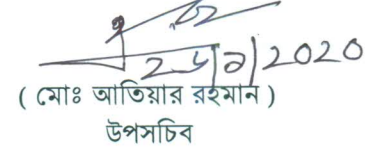 2020
( মোঃ আতিয়ার রহমান )
উপসচিব